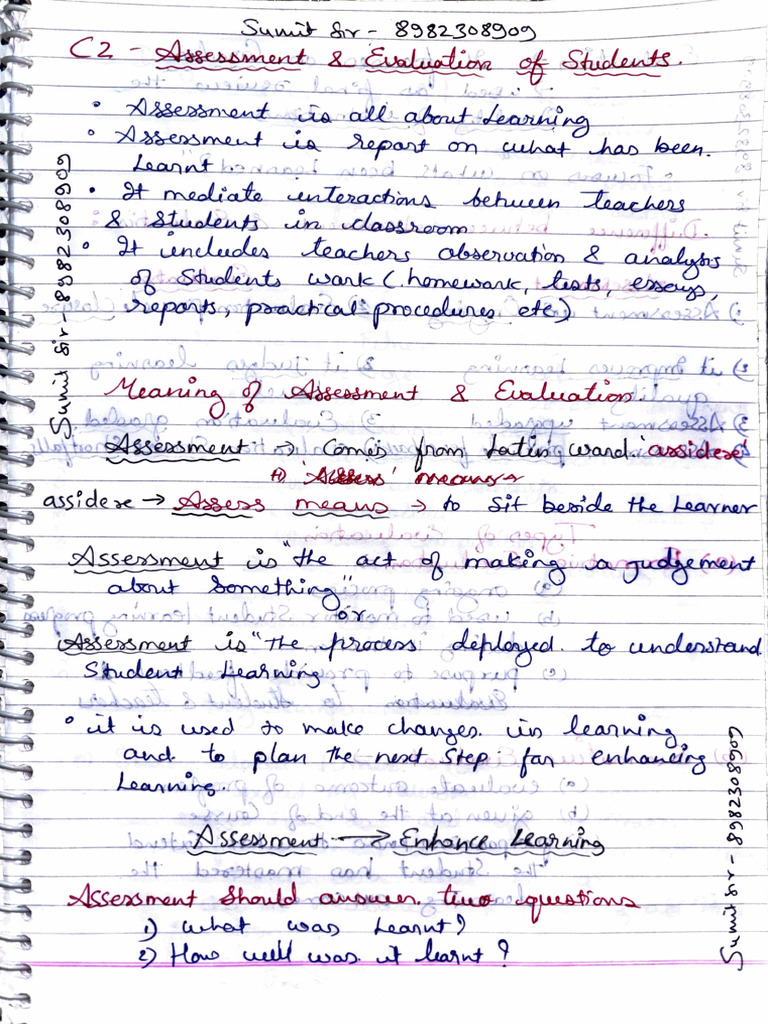 Sumit Sir - 8982308909
C2 - Assessment & Evaluation of Students.
• Assessment is all about Learning
• Assessment is report on what has been
Learnt
• It mediate interactions between teachers
& Students in classroom
• It includes teachers observation & analysis
of Students work (homework, tests, essays,
reports, practical procedures etc)
Meaning of Assessment & Evaluation
Assessment → Comes from Latin word 'assidere'
'Assess' means
assidere → Assess means → to sit beside the Learner
Assessment is "the act of making a judgement
about something"
or
Assessment is "the process deployed to understand
Student Learning
• it is used to make changes in learning
and to plan the next step for enhancing
Learning.
Assessment → Enhance Learning
Assessment should answer two questions
1) What was Learnt?
2) How well was it learnt?
Sumit Sir - 8982308909
Sumit Sir - 8982308909